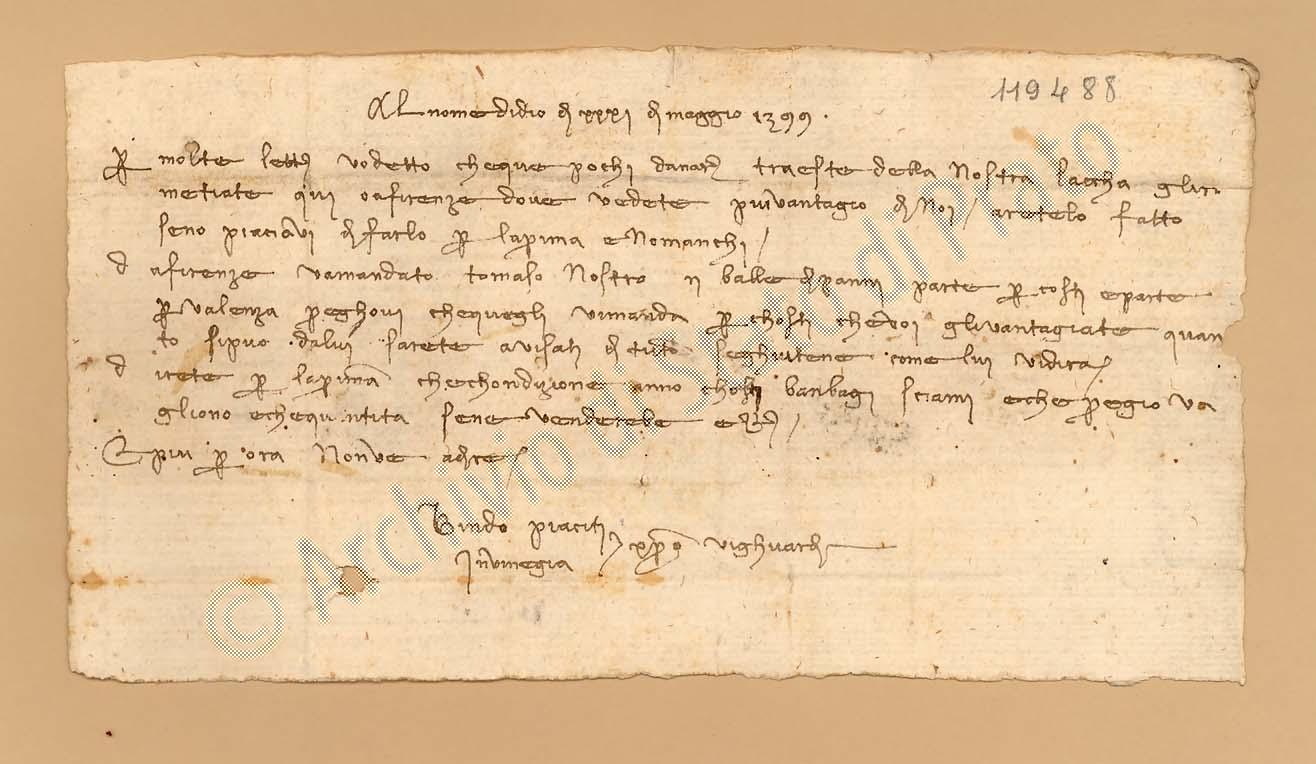 119488
Al nome di dio di xxxi di maggio 1399.
Per molte lettere vo detto che que pochi danari traeste della nostra laccha gli ri
metiate qui o a firenze dove vedete piu vantagio di noi / aretelo fatto
se no piaciavi di farlo per la prima e no manchi /
d a firenze v a mandato tomaso nostro ii balle di panni parte per costi e parte
per valenza preghovi che quegli vi manda per chosti che voi gli vantagiate quan
to si puo da lui sarete avisati di tutto seghuitene come lui vi dira /
d irete per la prima che chondizione anno chosti banbagi sciami e che pregio va
gliono e che quantita se ne venderebe e
E piu per ora non v e a dire /
Bindo piaciti
In vinegia
© Archivio di Stato di Prato